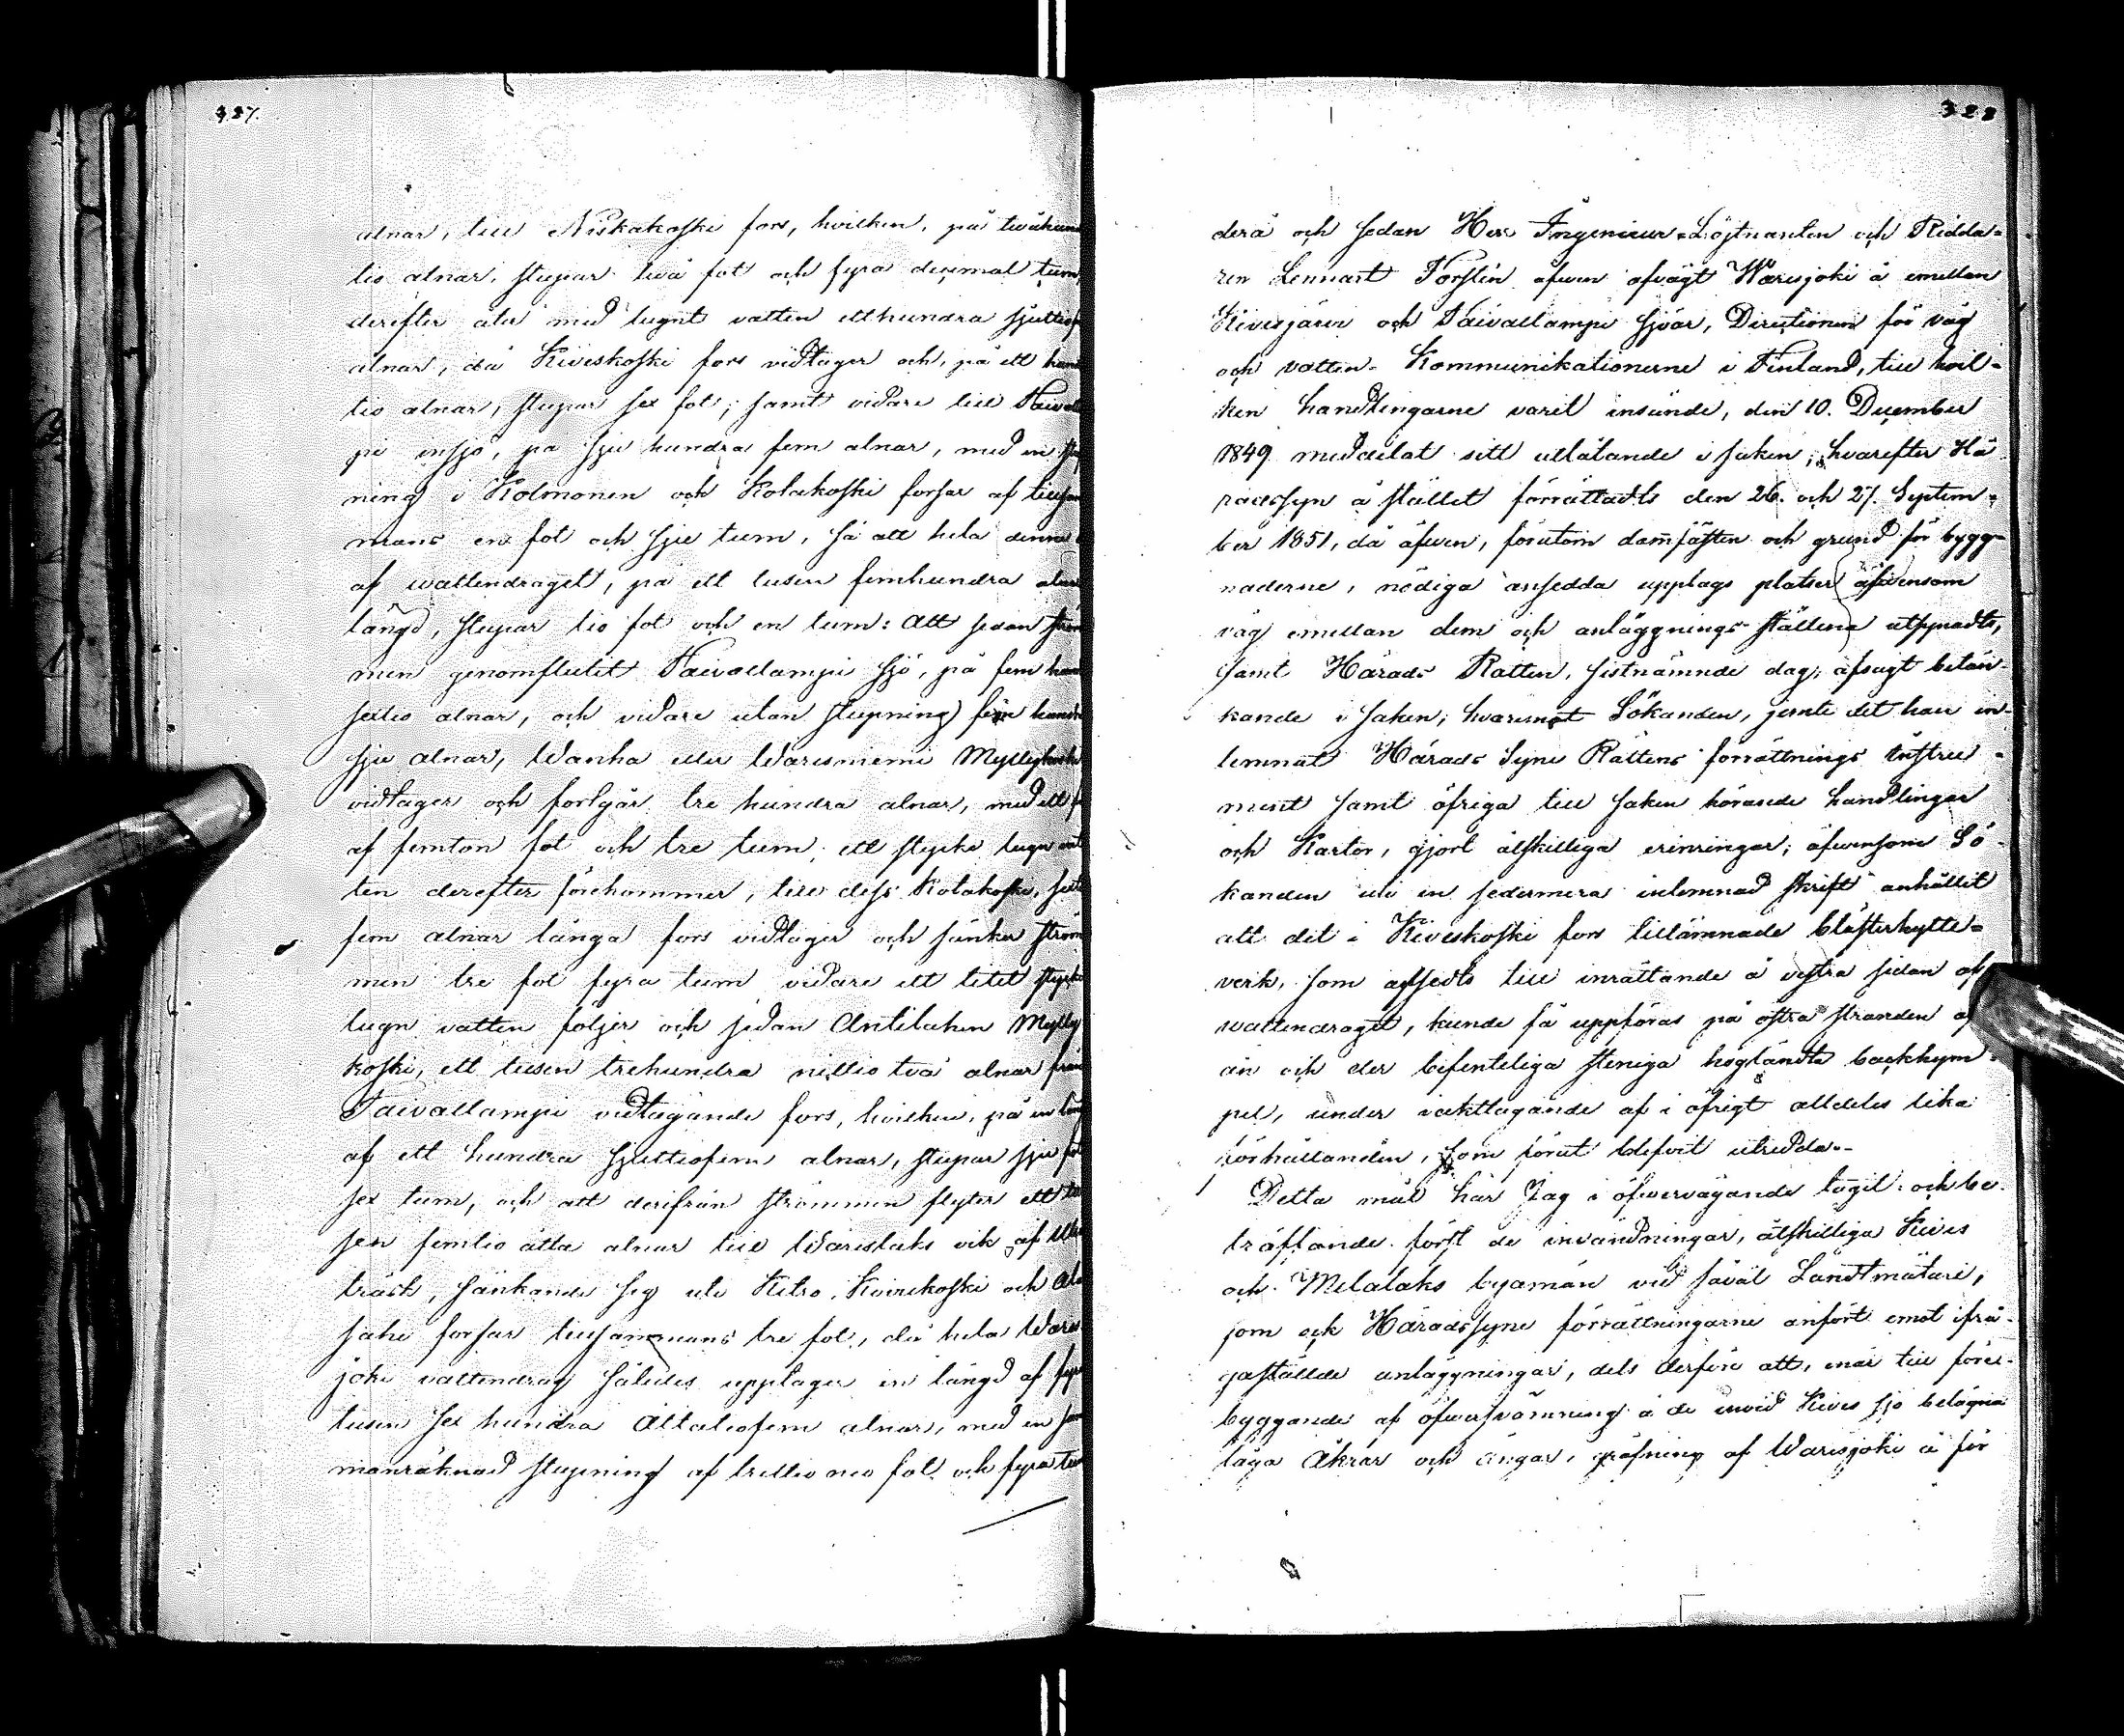 327.
alnar, till Niskakoski fors, hvilken, på tvåhund
tio alnar, stupar två fot och fyra decimal tum,
derefter åter med lugnt vatten etthundra sjuttiof
alnar, då Kiveskoski fors vidtager och, på ett hund
tio alnar, stupar sex fot; samt vidare till Taival
pi insjö, på sju hundra fem alnar, med en stup
ning i Kolmonen och Kotakoski forsar af tillsam
mans en fot och sju tum, så att hela denna
af wattendraget, på ett tusen femhundra alnar
längd, stupar tio fot och en tum: Att sedan ström
men genomflutit Taivallampi sjö, på fem hund
sextio alnar, och vidare utan stupning fem hundra
sju alnar, Wanha eller Warisniemi Myllykoski
vidtager och fortgår tre hundra alnar, med ett f
af femton fot och tre tum; ett stycke lugn vat
ten derefter förekommer, till dess Kotakoski, sextio
fem alnar långa fors vidtager och sänker ström
men tre fot fyra tum vidare ett litet stycke
lugn vatten följer och sedan Antilaken Mylly
koski, ett tusen trehundra nittio två alnar från
Taivallampi vidtagande fors, hvilken, på en läng
af ett hundra sjuttiofem alnar, stupar sju fot
sex tum, och att derifrån strömmen flyter ett tu
sen femtio åtta alnar till Warislaks vik af Ule
träsk, sänkande sig uti Kitso, Kivirikoski och Ala
saki forsar tillsammans tre fot, då hela Waris
joki vattendrag således upptager en längd af fyra
tusen sex hundra Åttatiofem alnar, med en sam
manräknad stupning af trettio nio fot och fyra tum
328
derå och sedan Herr Ingenieur-Löjtnanten och Ridda-
ren Lennart Forstén äfven afvägt Warisjoki å emellan
Kivesjärvi och Taivallampi sjöar, Directionen för väg
och vatten-Kommunikationerne i Finland, till hvil-
ken handlingarne varit insände, den 10. December
1849 meddelat sitt utlåtande i saken; hvarefter Hä
radssyn å stället förrättadts den 26. och 27. Septem-
ber 1851, då äfven, förutom dammfästen och grund för bygg-
naderne, nödiga ansedda upplags platser äfvensom
väg emellan dem och anläggnings ställena utsynadts,
samt Härads Rätten, sistnämnde dag, afsagt betän-
kande i saken; hvaremot Sökanden, jemte det han in-
lemnat Härads Syne Rättens förrättnings instru-
ment samt öfriga till saken hörande handlingar
och Kartor, gjort åtskilliga erinringar; äfvensom Sö-
kanden uti en sedermera inlemnad skrift anhållit
att det i Kiveskoski fors tillämnade blästerhytte-
verk, som afsedts till inrättande å vestra sidan af
wattendraget, kunde få uppföras på östra stranden af
ån och der befinteliga steniga högländta backhym-
pel, under iakttagande af i öfrigt alldeles lika
förhållanden, som förut blifvit utredda.-
Detta mål har Jag i öfvervägande tagit: och be-
träffande först de invändningar, åtskilliga Kives
och Melalaks byamän vid såväl Landtmätare,
som ock Häradssyne förrättningarne anfört emot ifrå-
gaställde anläggningar, dels derföre att, när till före-
byggande af öfversvämning å de invid Kives sjö belägna
låga Åkrar och ängar, gräfning af Warisjoki å för